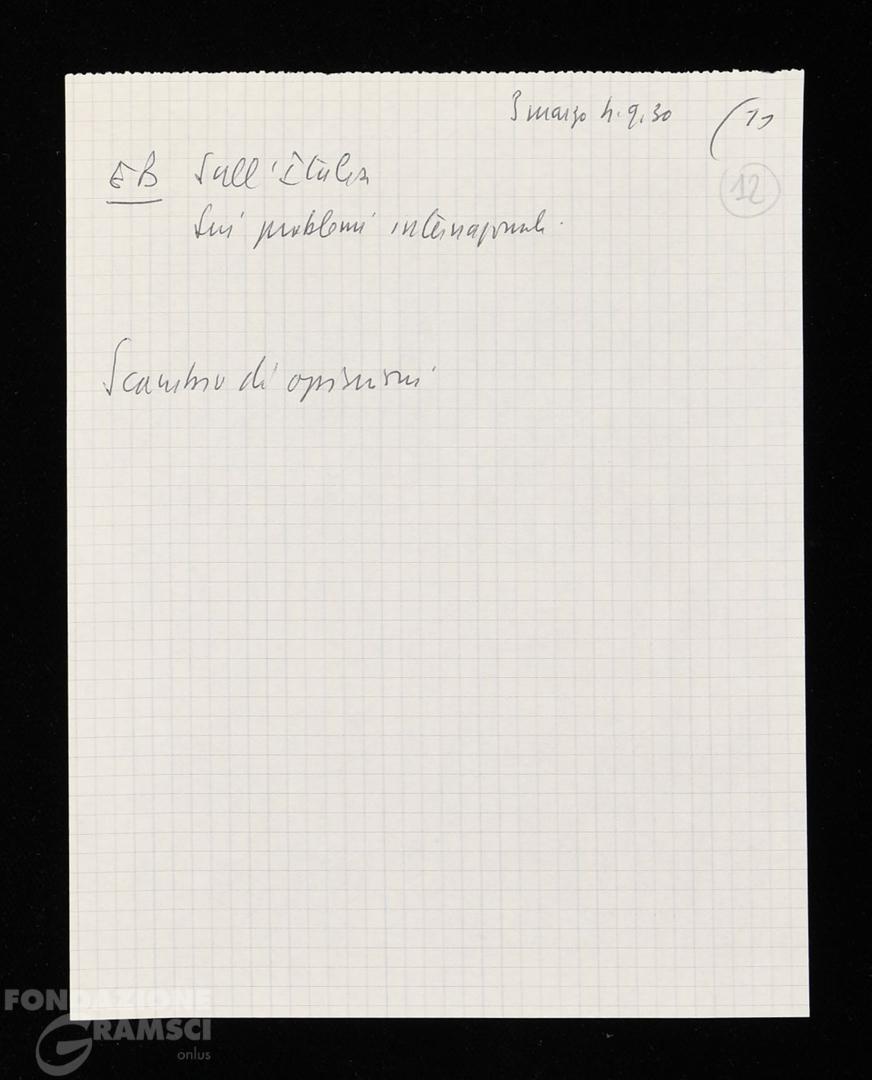 3 marzo h. 9,30
12
EB Sull'Italia
Sui problemi internazionali.
Scambio di opinioni
FONDAZIONE
GRAMSCI
onlus